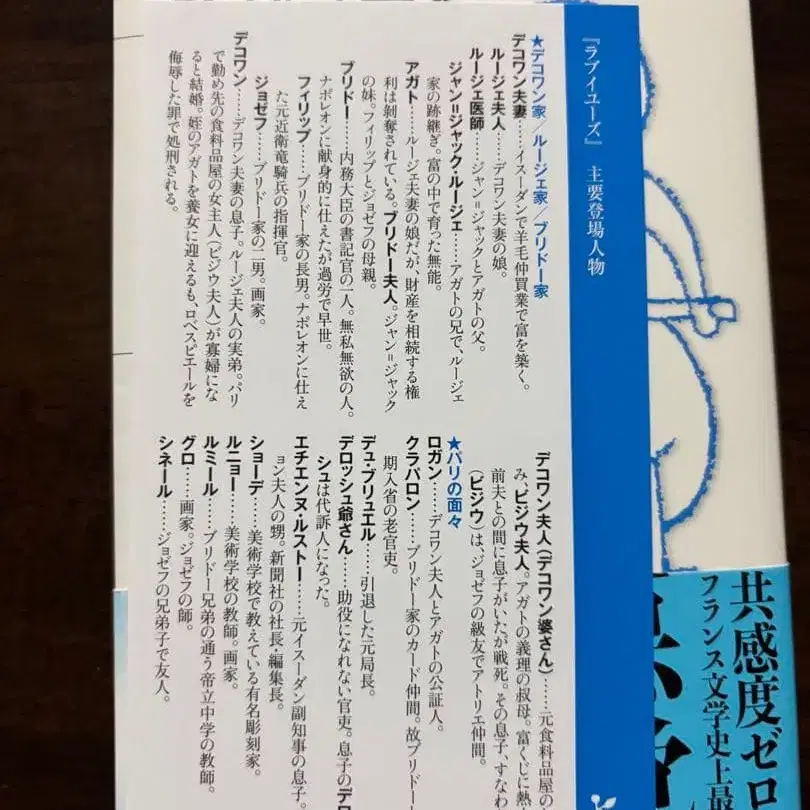 『ラブイユーズ』 主要登場人物
★デコワン家/ルージェ家/ブリドー家
デコワン夫妻……イースーダンで羊毛仲買業で富を築く。
ルージェ夫人……デコワン夫妻の娘。
ルージェ医師……ジャン=ジャックとアガトの父。
ジャン=ジャック・ルージェ……アガトの兄で、ルージェ
家の跡継ぎ。富の中で育った無能。
アガト……ルージェ夫妻の娘だが、財産を相続する権
利は剝奪されている。ブリドー夫人。ジャン=ジャック
の妹。フィリップとジョゼフの母親。
ブリドー……内務大臣の書記官の一人。無私無欲の人。
ナポレオンに献身的に仕えたが過労で早世。
フィリップ……ブリドー家の長男。ナポレオンに仕え
た元近衛竜騎兵の指揮官。
ジョゼフ……ブリドー家の二男。画家。
デコワン……デコワン夫妻の息子。ルージェ夫人の実弟。パリ
で勤め先の食料品屋の女主人(ビジウ夫人)が寡婦にな
ると結婚。姪のアガトを養女に迎えるも、ロベスピエールを
侮辱した罪で処刑される。
デコワン夫人(デコワン婆さん)……元食料品屋の
み、ビジウ夫人。アガトの義理の叔母。富くじに熱
前夫との間に息子がいたが戦死。その息子、すなわ
(ビジウ)は、ジョゼフの級友でアトリエ仲間。
★パリの面々
ロガン……デコワン夫人とアガトの公証人。
クラパロン……ブリドー家のカード仲間。故ブリドー
期入省の老官吏。
デュ・ブリュエル……引退した元局長。
デロッシュ爺さん……助役になれない官吏。息子のデロ
シュは代訴人になった。
エチエンヌ・ルストー……元イースーダン副知事の息子。
ョン夫人の甥。新聞社の社長・編集長。
ショーデ……美術学校で教えている有名彫刻家。
ルニョー……美術学校の教師。画家。
ルミール……ブリドー兄弟の通う帝立中学の教師。
グロ……画家。ジョゼフの師。
シネール……ジョゼフの兄弟子で友人。
共感度ゼロ
フランス文学史上最